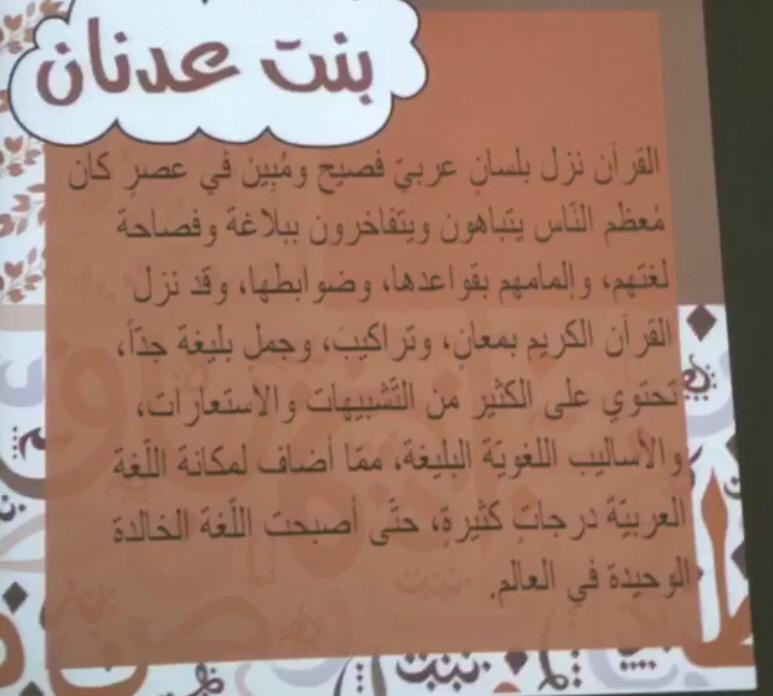 بنت عدنان
القرآن نزل بلسانٍ عربيّ فصيح ومُبين في عصرٍ كان
مُعظم النّاس يتباهون ويتفاخرون ببلاغة وفصاحة
لغتهم، وإلمامهم بقواعدها، وضوابطها، وقد نزل
القرآن الكريم بمعانٍ، وتراكيبَ، وجملٍ بليغة جدّاً،
تحتوي على الكثير من التّشبيهات والاستعارات،
والأساليب اللغويّة البليغة، ممّا أضاف لمكانة اللّغة
العربيّة درجاتٍ كثيرةٍ، حتّى أصبحت اللّغة الخالدة
الوحيدة في العالم.